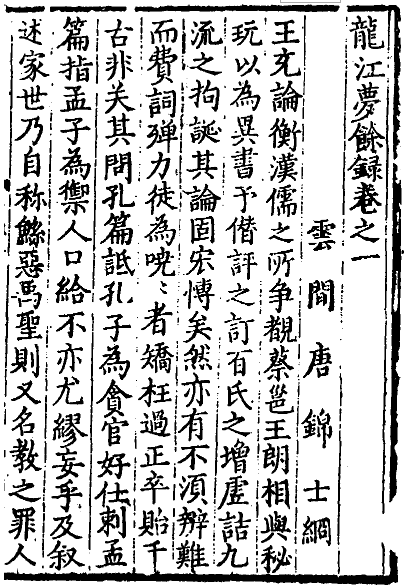 龍江夢餘錄卷之一
雲間唐錦士綱
王充論衡漢儒之所爭覩蔡邕王朗相與秘
玩以為異書予僭評之訂百氏之增虛詰九
流之拘誕其論固宏博矣然亦有不須辨難
而費詞殫力徒為嘵〻者矯枉過正卒貽千
古非笑其問孔篇詆孔子為貪官好仕刺孟
篇指孟子為禦人口給不亦尤繆妄乎及叙
述家世乃自称鯀惡禹聖則又名教之罪人